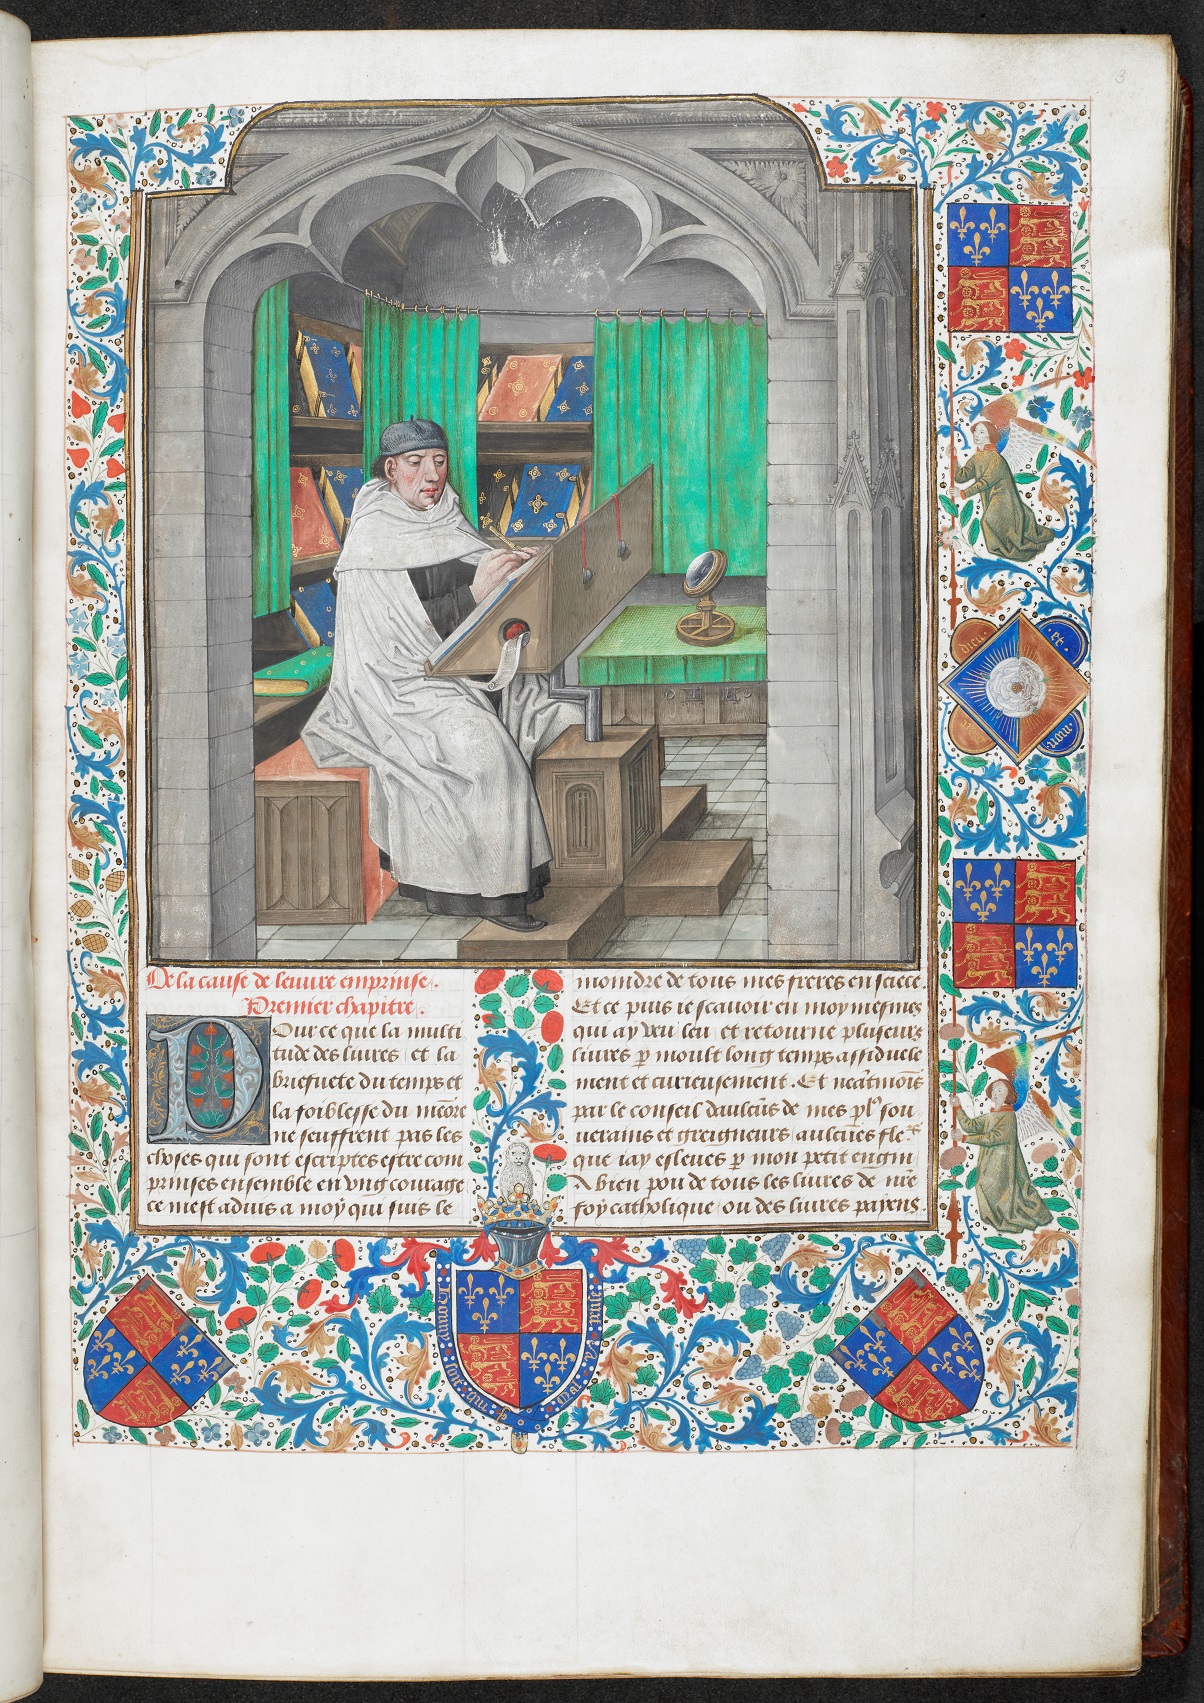 3
De la cause de leuure emprinse.
Premier chapitre.
Pour ce que la multi
tude des liures et la
briefuete du temps et
la foiblesse du meōre
ne seuffrent pas les
choses qui sont escriptes estre com
prinses ensemble en vng courage
ce mest aduis a moy qui suis le
moindre de tous mes freres en sciēce
Et ce puis ie scauoir en moymesmes
qui ay veu leu et retourne pluseurs
liures p moult long temps assiduele
ment et curieusement. Et neātmoīs
par le conseil daulcūs de mes
uerains et greigneurs aulcūes fle
que iay esleues p mon petit engin
A bien pou de tous les liures de nr̄e
foy catholique ou des liures payens
dieu. et
mon.
Honny soit qui mal y pense